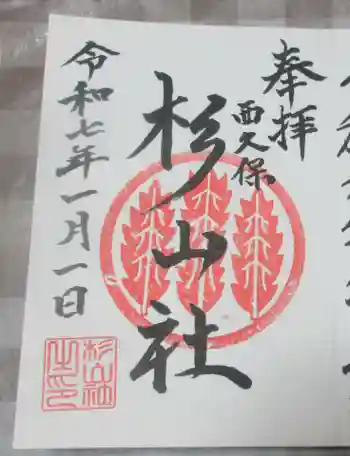 奉拝
西久保
杉山社
令和七年一月一日
杉山社之印